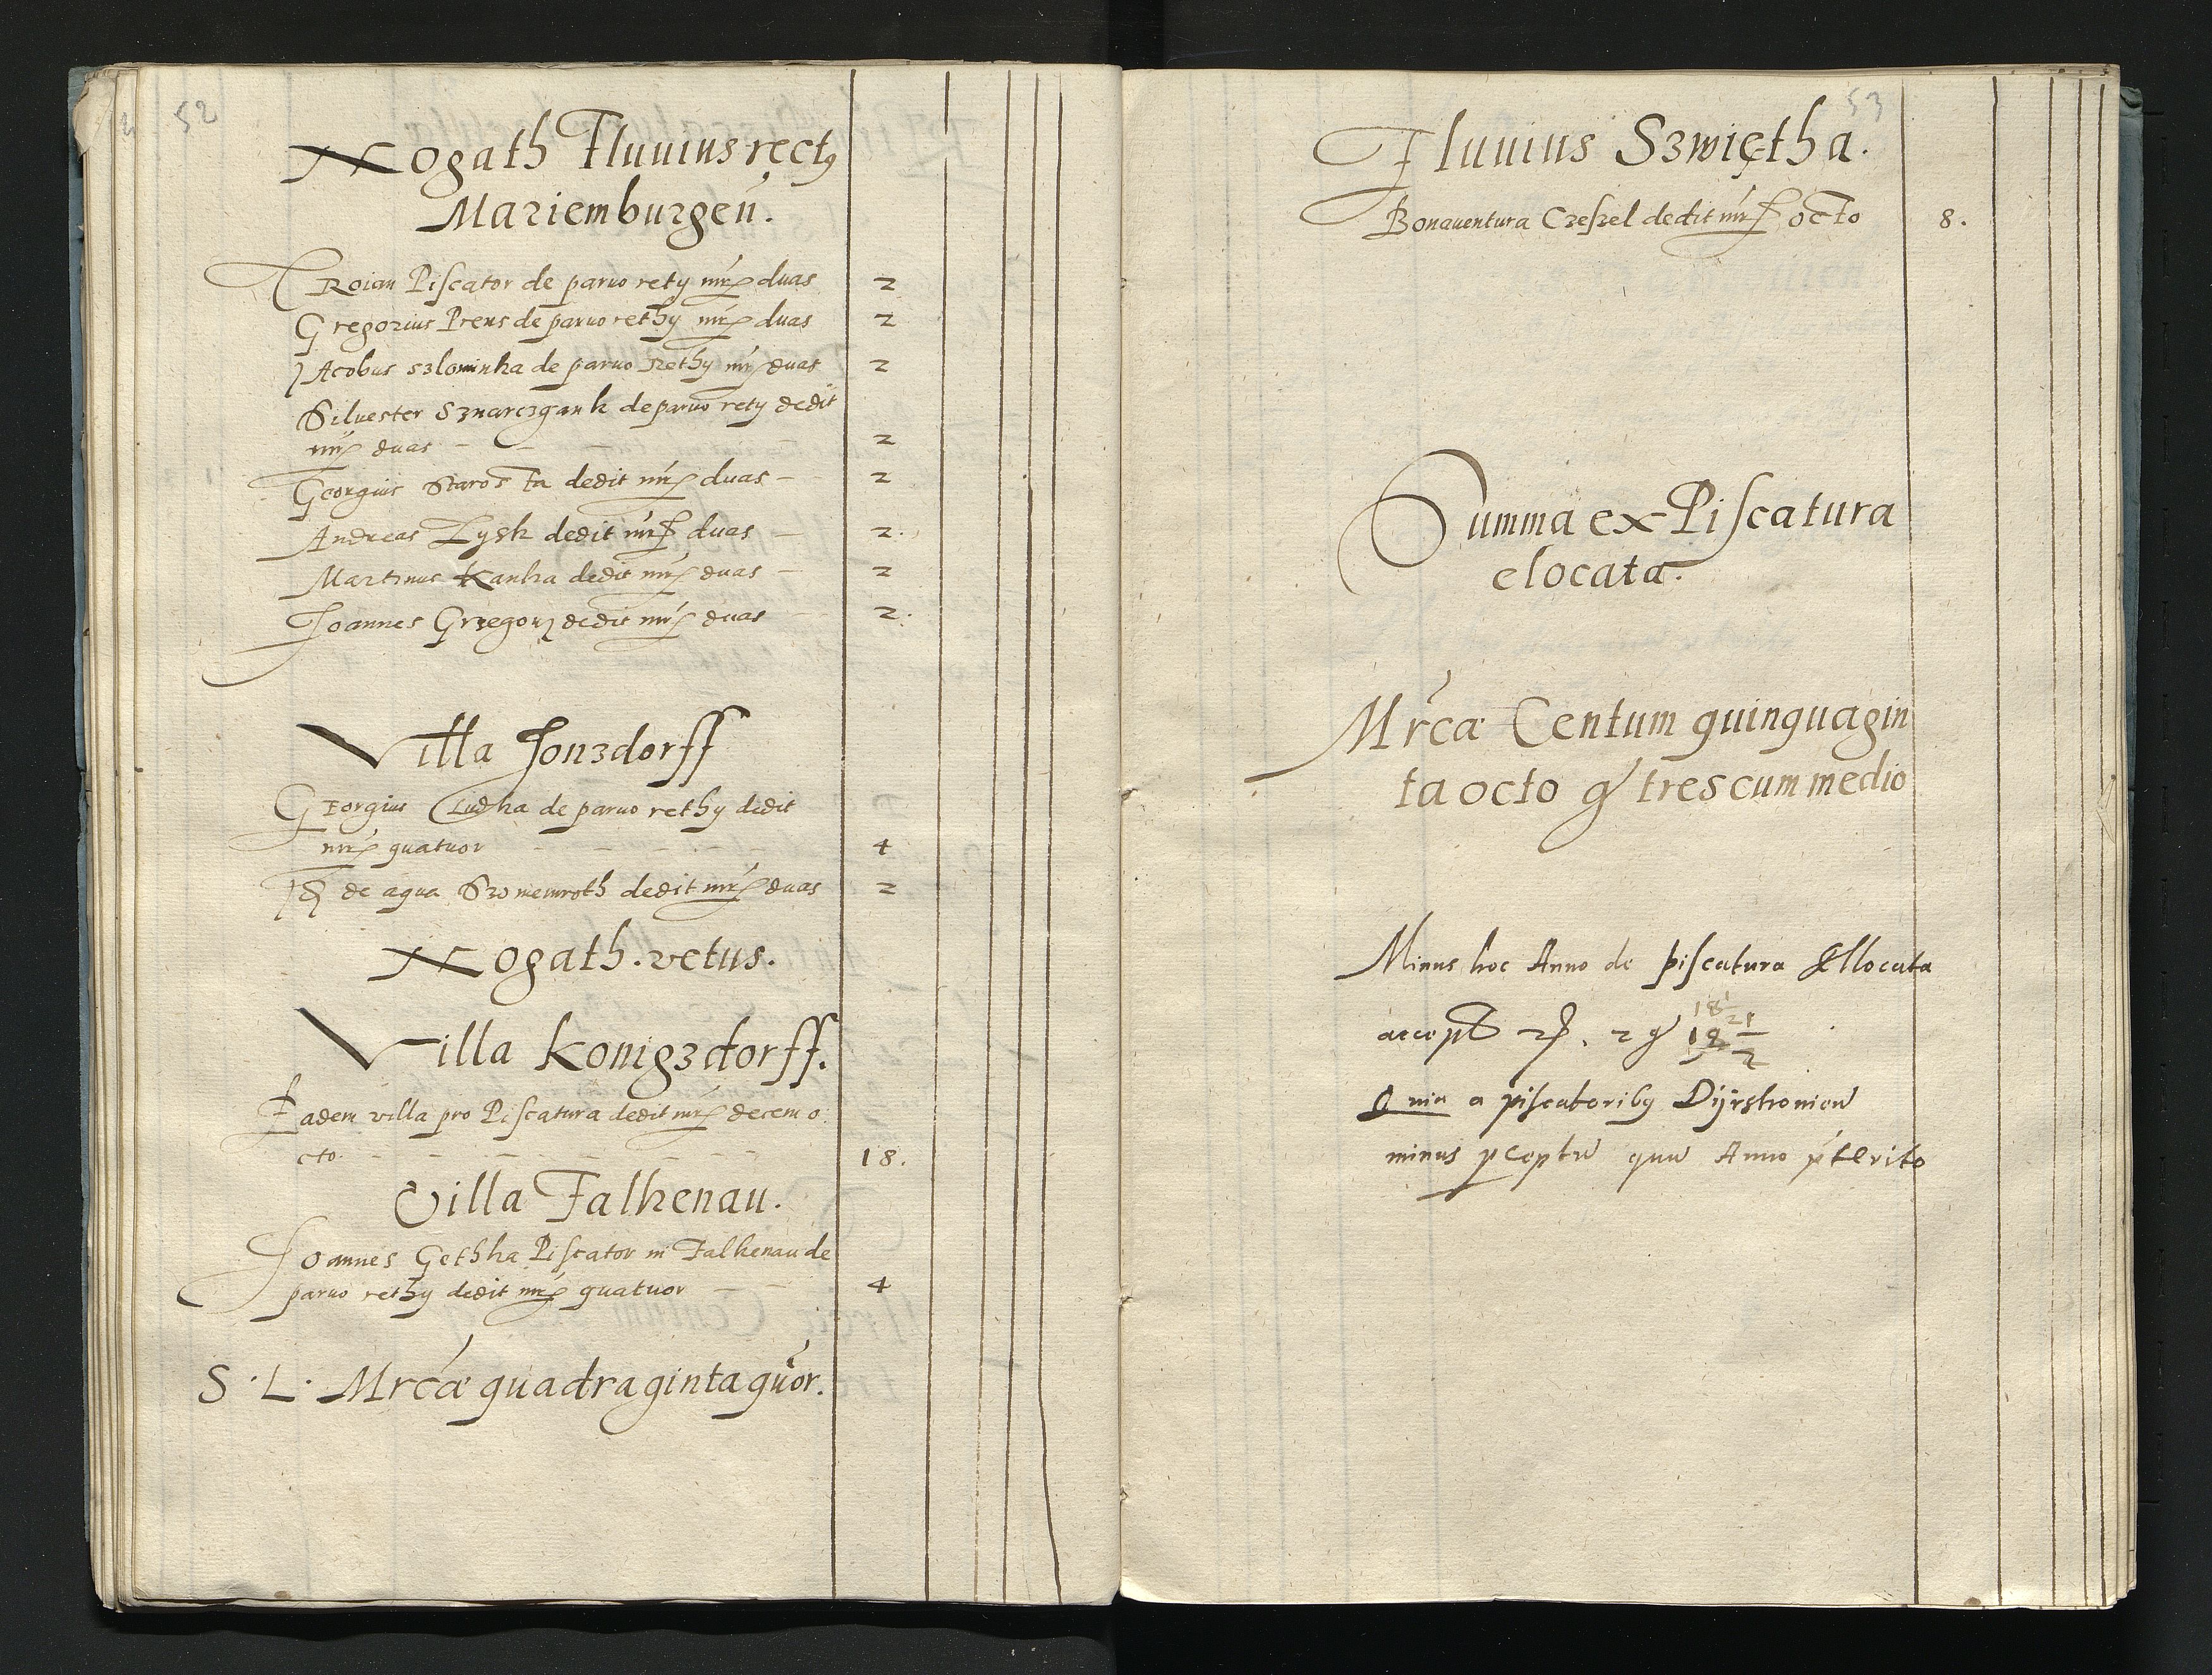 52
Nogath Fluuius rectq
Mariemburgeñ.
Troian Piscator de paruo rety mrc duas 2
Gregorius Prens de paruo rethy mrc duas 2
Jacobus Szlominka de paruo Rethy mrc duas 2
Siluester Sznarczgank de paruo rety dedit
mrc duas 2
Georgius Starosta dedit mrc duas 2
Andreas Lysk dedit mrc duas 2.
Martinus Kanka dedit mrc duas 2
Joannes Grzegorz dedit mrc duas 2.
Villa Jonzdorff
Georgius Ludka de paruo rethy dedit
mrc quatuor 4
de aqua dedit mrc duas 2
Nogath. vetus.
Villa Konigzdorff.
Eadem villa pro Piscatura dedit mrc decem o
cto. 18.
Villa Falkenau.
Joannes Gethka Piscator in Falkenau de
paruo rethy dedit mrc quatuor 4
S. L. Mrcæ quadraginta quor.
53
Fluuius Szwiętha.
Bonauentura Czeszel dedit mrc octo 8.
Summa ex Piscatura
elocata.
Mrcæ Centum quinquagin
ta octo g tres cum medio
Minus hoc Anno de piscatura Ellocata
accept 2 g
Q nia a piscatoribq Dyrskonien
minus pceptu quu Anno pterito